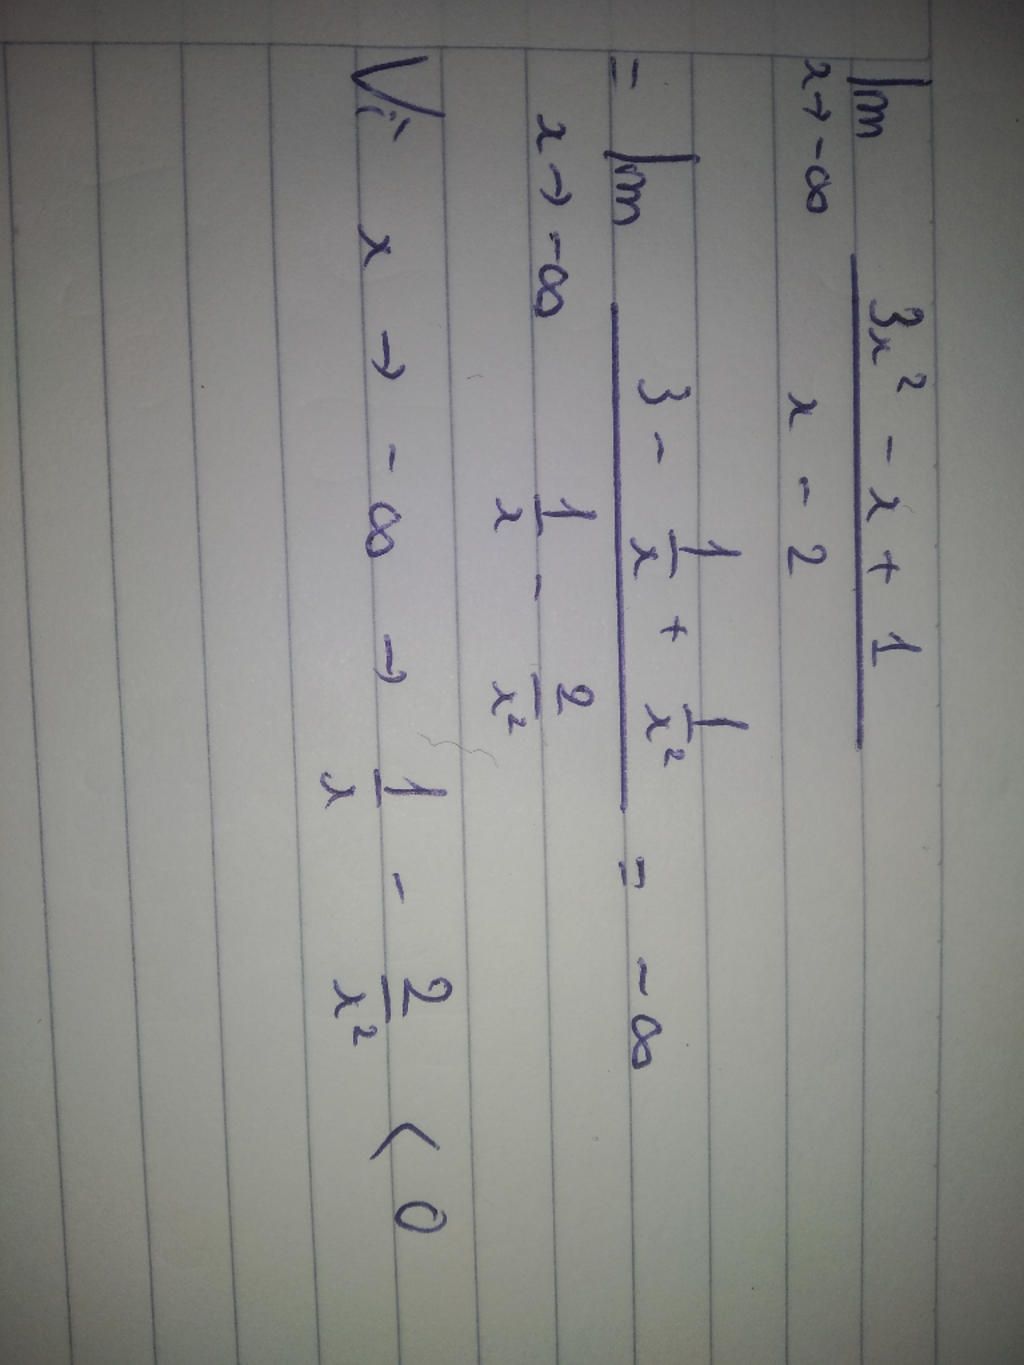 lim 3x² - x + 1
x→-∞ x - 2
= lim 3 - 1/x + 1/x² = -∞
x→-∞ 1/x - 2/x²
Vì x → -∞ → 1/x - 2/x² < 0